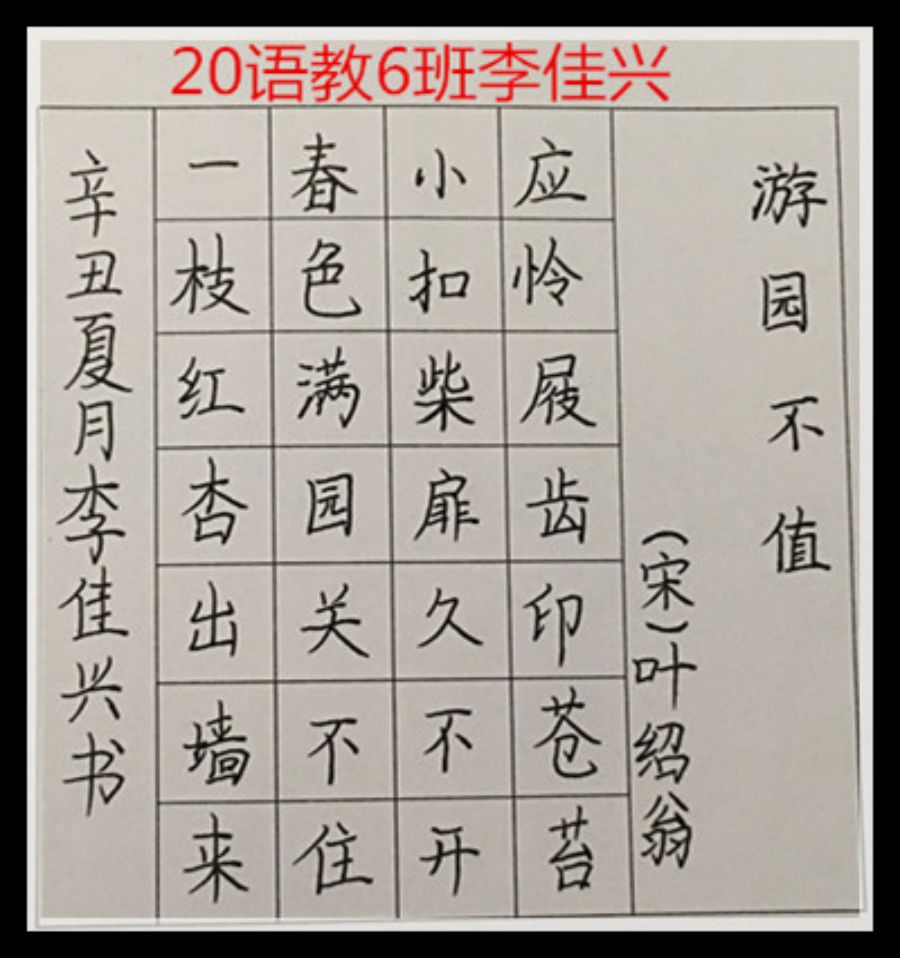 20语教6班李佳兴
游园不值
（宋）叶绍翁
应怜屐齿印苍苔
小扣柴扉久不开
春色满园关不住
一枝红杏出墙来
辛丑夏月李佳兴书